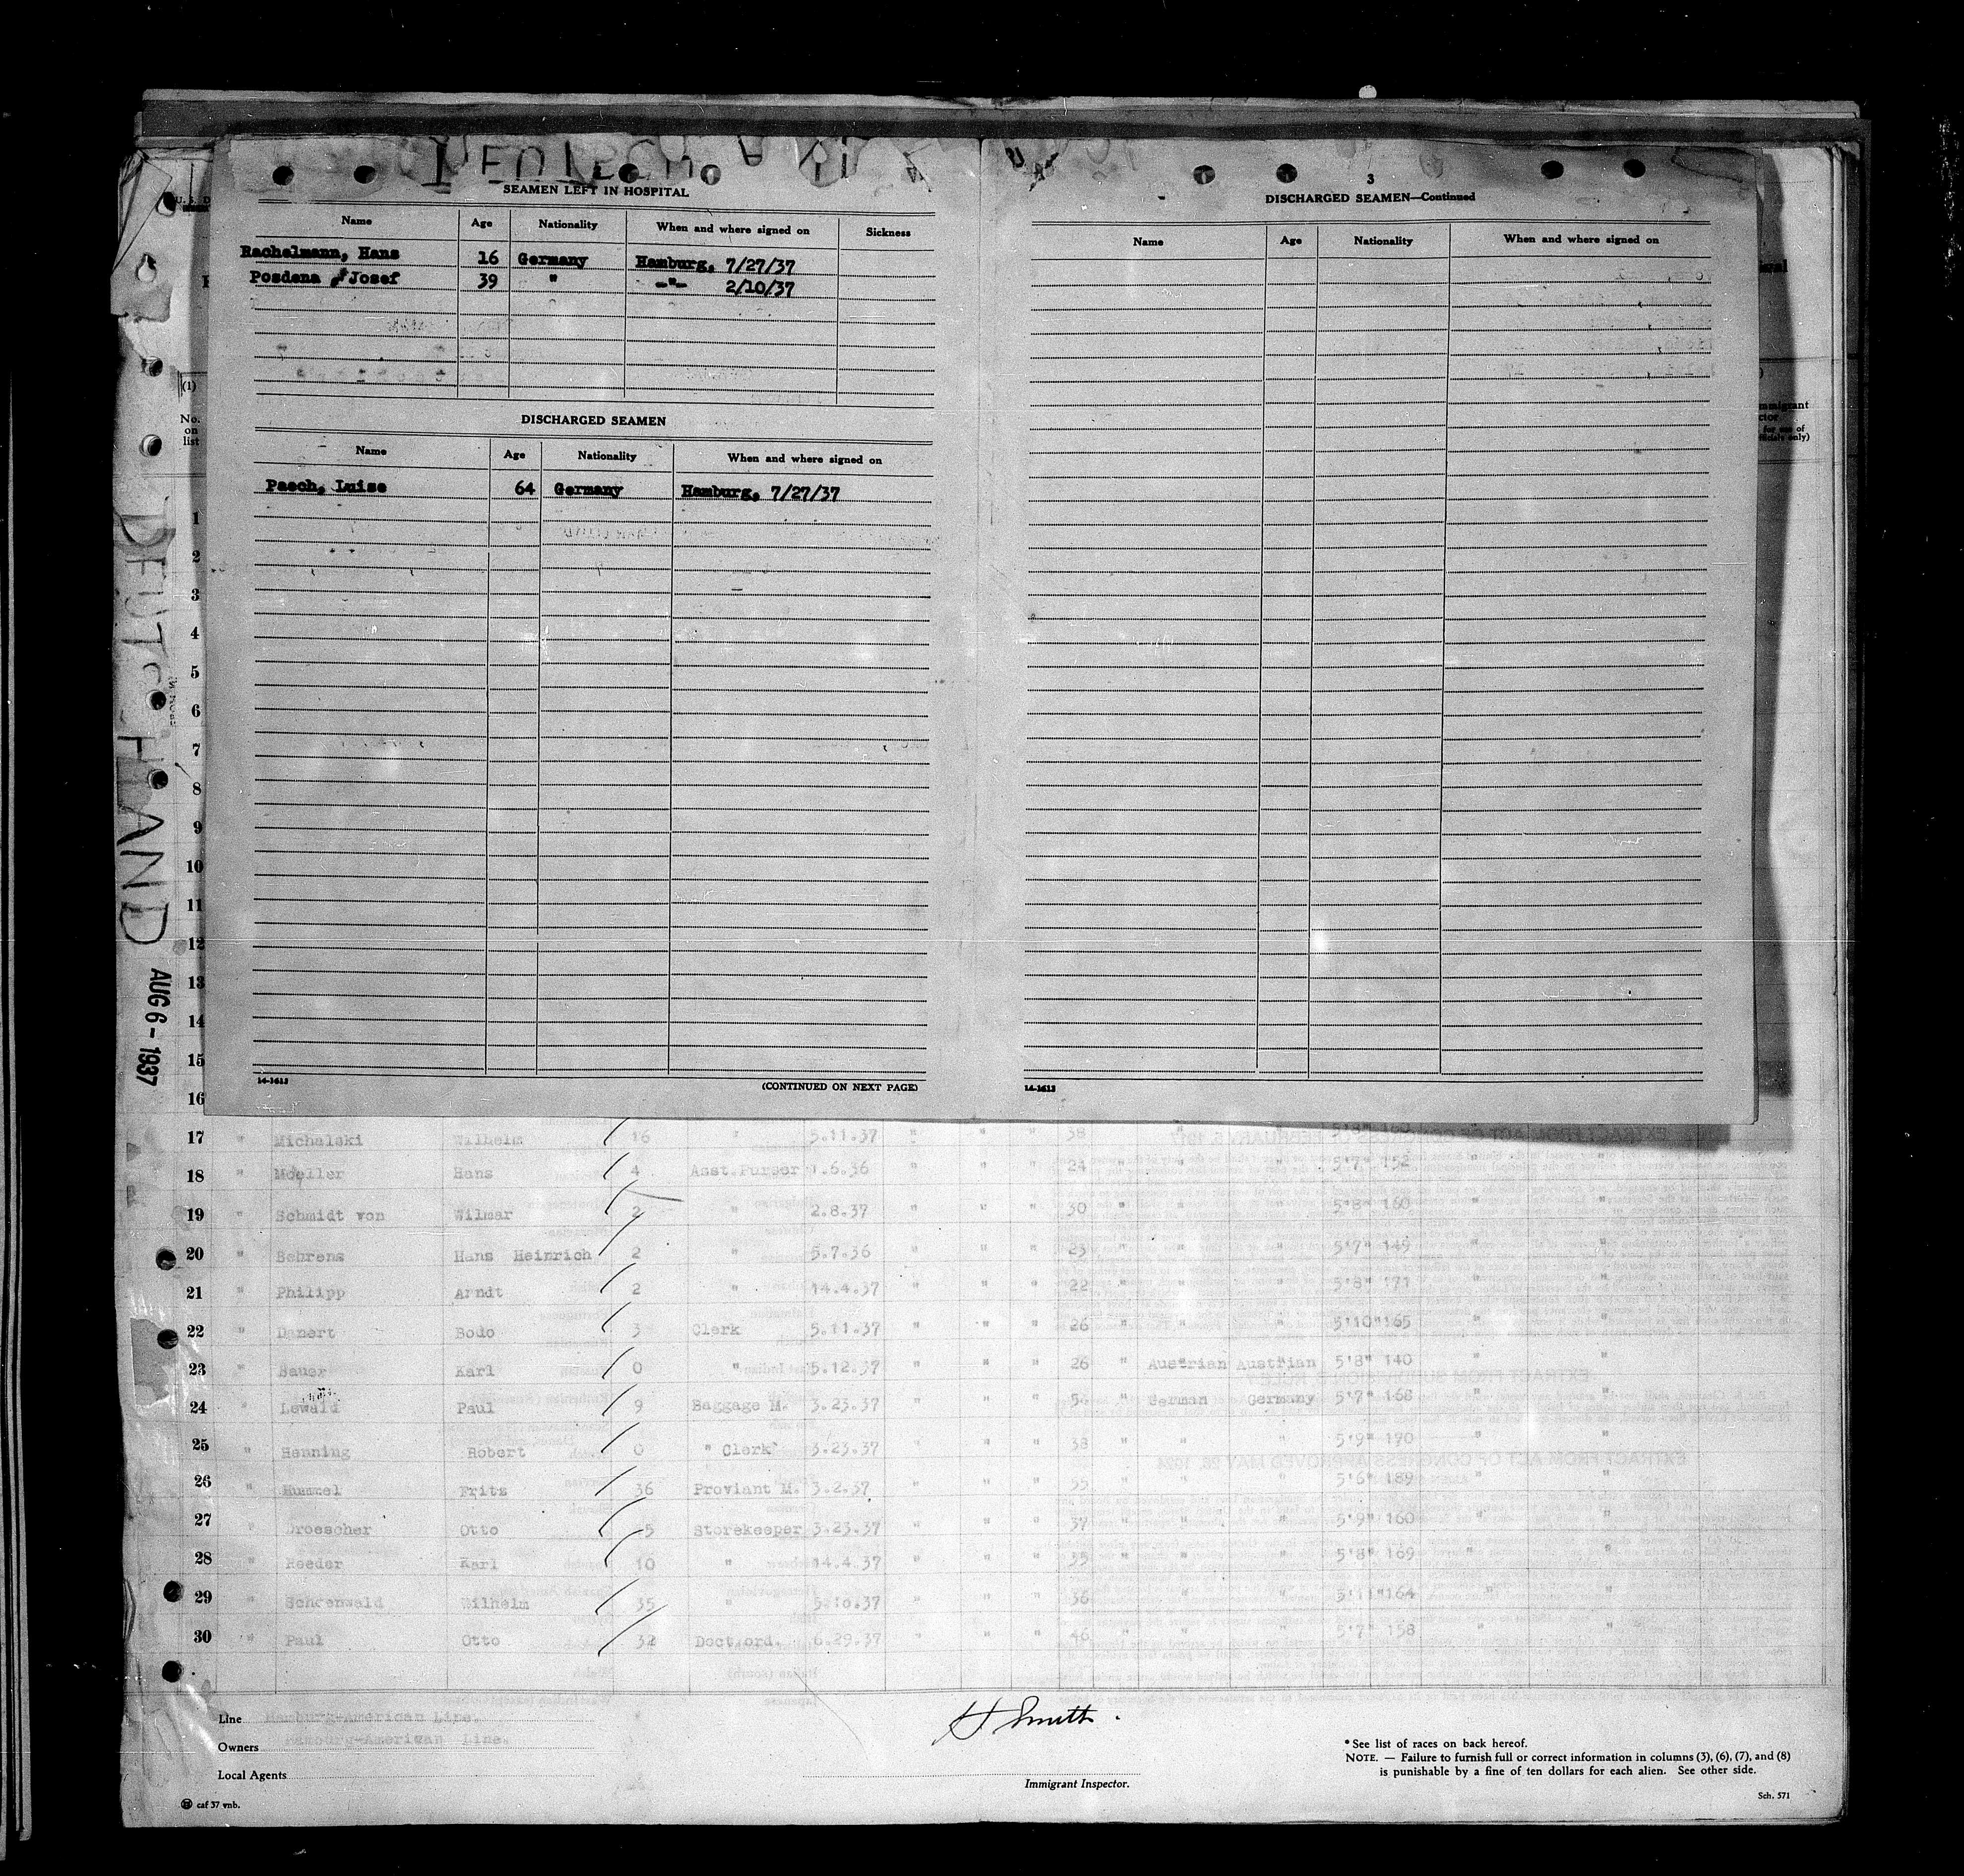 DEUTSCH
SEAMEN LEFT IN HOSPITAL
Name Age Nationality When and where signed on Sickness
Rachelmann, Hans 16 Germany Hamburg, 7/27/37
Posdena Josef 39 " -"- 2/10/37
DISCHARGED SEAMEN
Name Age Nationality When and where signed on
Pasch, Luise 64 Germany Hamburg, 7/27/37
(CONTINUED ON NEXT PAGE)
14-1613
3
DISCHARGED SEAMEN—Continued
Name Age Nationality When and where signed on
14-1613
(1)
No. on list
DEUTSCHLAND
AUG 6 - 1937
1
2
3
4
5
6
7
8
9
10
11
12
13
14
15
16
17 " Michalski Wilhelm 16 " 5.11.37 " " " 38
18 " Moeller Hans 4 Asst.Purser 1.6.36 " " " 24 " " " 5'7" 152 " "
19 " Schmidt von Wilmar 2 " 2.8.37 " " " 30 " " " 5'8" 160 " "
20 " Behrens Hans Heinrich 2 " 5.7.36 " " " 23 " " " 5'7" 149 " "
21 " Philipp Arndt 2 " 14.4.37 " " " 22 " " " 5'8" 171 " "
22 " Danert Bodo 3 Clerk 5.11.37 " " " 26 " " " 5'10" 165 " "
23 " Bauer Karl 0 " 5.12.37 " " " 26 " Austrian Austrian 5'8" 140 " "
24 " Lewald Paul 9 Baggage M. 3.23.37 " " " " German Germany 5'7" 168 " "
25 " Henning Robert 0 " Clerk 3.23.37 " " " 38 " " " 5'9" 170 " "
26 " Hummel Fritz 36 Proviant M. 3.2.37 " " 55 " " " 5'6" 189 " "
27 " Droescher Otto 5 Storekeeper 3.23.37 " " " 37 " " " 5'9" 160 " "
28 " Reeder Karl 10 " 14.4.37 " " " 35 " " " 5'8" 169 " "
29 " Schoenwald Wilhelm 35 " 5.10.37 " " 56 " " " 5'11" 164 " "
30 " Paul Otto 32 Doct.ord. 6.29.37 " " " 46 " " " 5'7" 158 " "
Line Hamburg-American Line.
Owners Hamburg-American Line.
Local Agents
H Smith.
Immigrant Inspector.
* See list of races on back hereof.
NOTE. — Failure to furnish full or correct information in columns (3), (6), (7), and (8)
is punishable by a fine of ten dollars for each alien. See other side.
caf 37 vnb.
Sch. 571